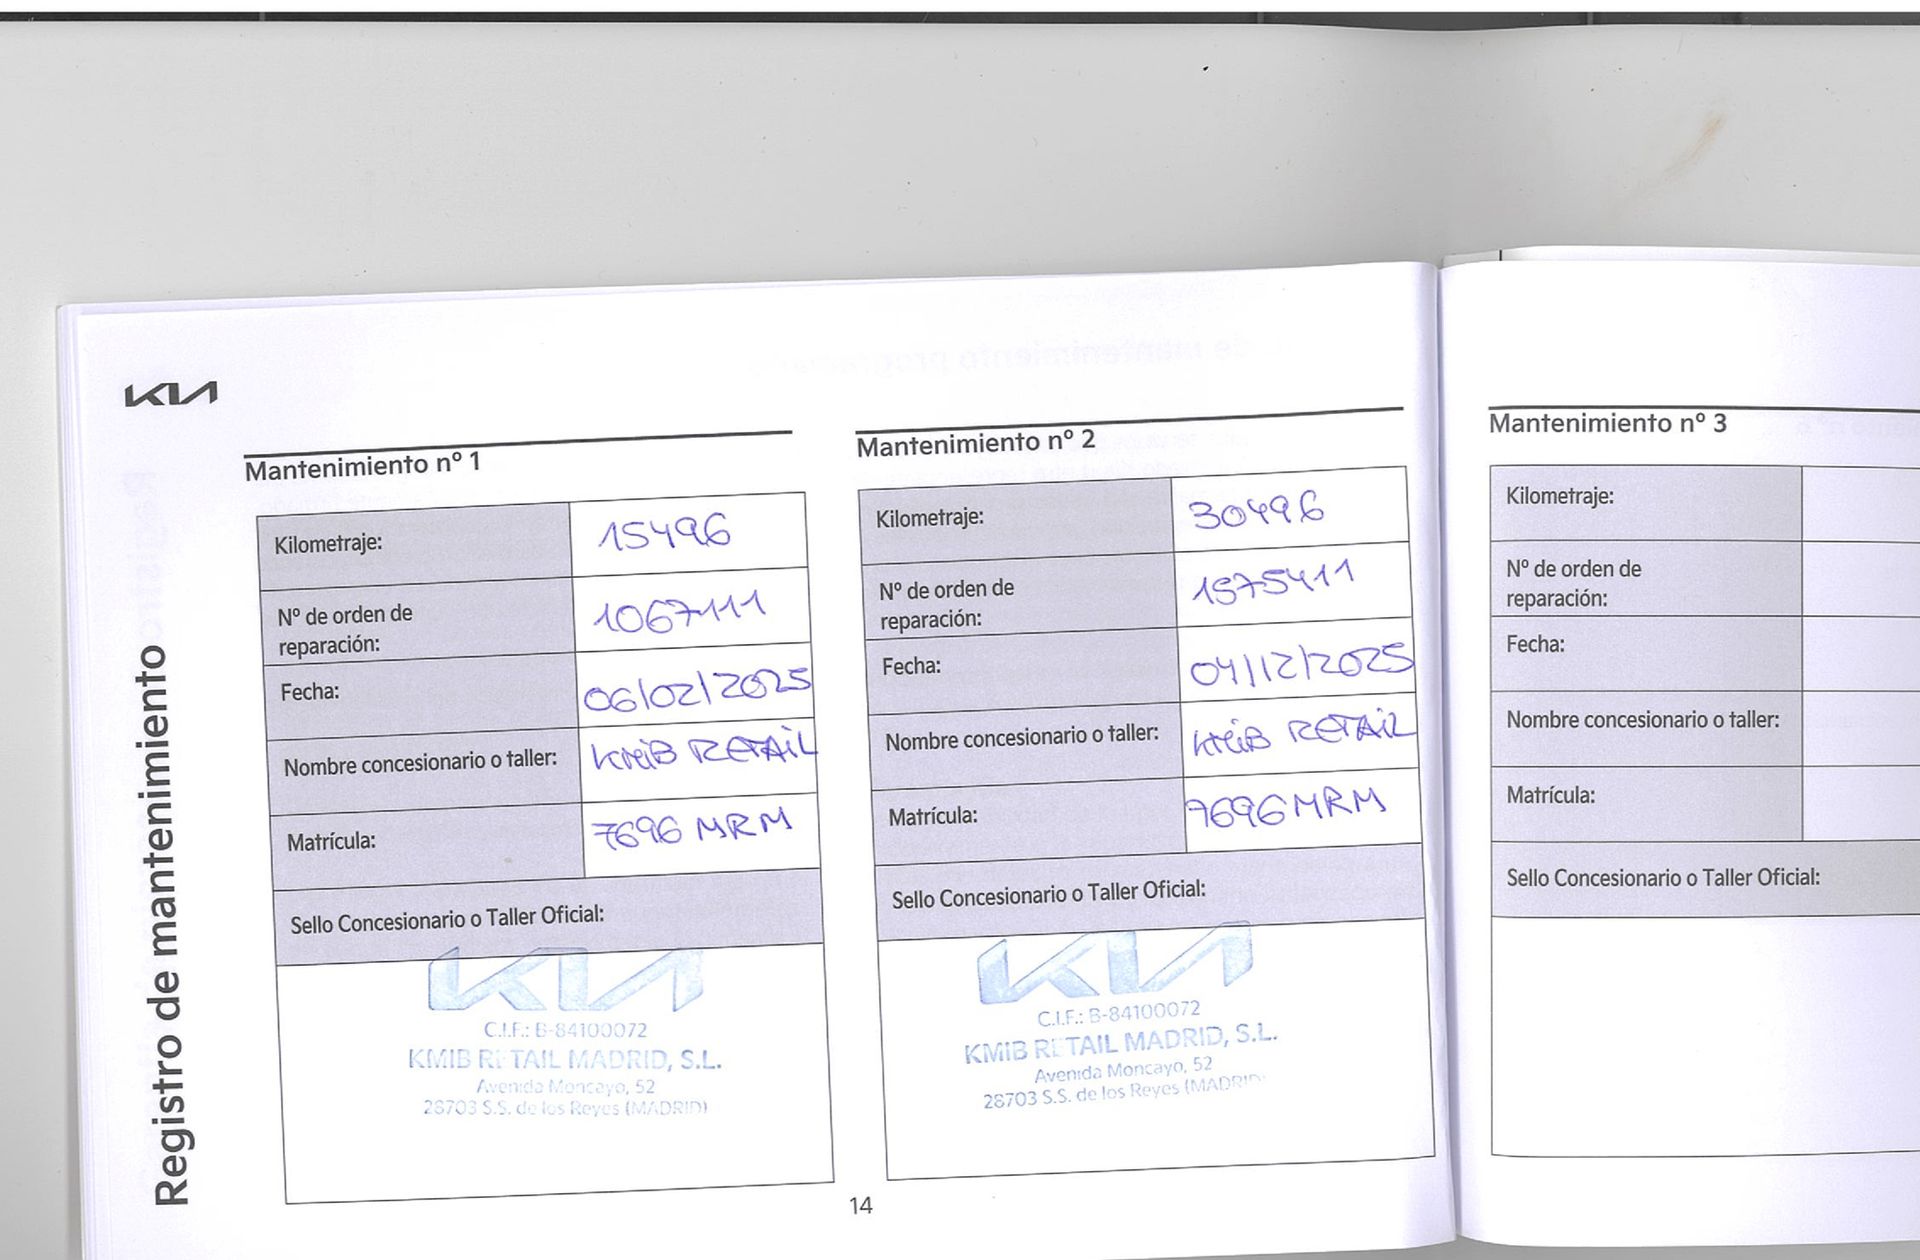 KIA
Registro de mantenimiento
Mantenimiento nº 1
Kilometraje: 15496
Nº de orden de
reparación: 1067111
Fecha: 06/02/2025
Nombre concesionario o taller: KMiB RETAiL
Matrícula: 7696 MRM
Sello Concesionario o Taller Oficial:
KIA
C.I.F.: B-84100072
KMIB RETAIL MADRID, S.L.
Avenida Moncayo, 52
28703 S.S. de los Reyes (MADRID)
Mantenimiento nº 2
Kilometraje: 30496
Nº de orden de
reparación: 1575411
Fecha: 04/12/2025
Nombre concesionario o taller: KMiB RETAiL
Matrícula: 7696 MRM
Sello Concesionario o Taller Oficial:
KIA
C.I.F.: B-84100072
KMIB RETAIL MADRID, S.L.
Avenida Moncayo, 52
28703 S.S. de los Reyes (MADRID)
14
Mantenimiento nº 3
Kilometraje:
Nº de orden de
reparación:
Fecha:
Nombre concesionario o taller:
Matrícula:
Sello Concesionario o Taller Oficial: